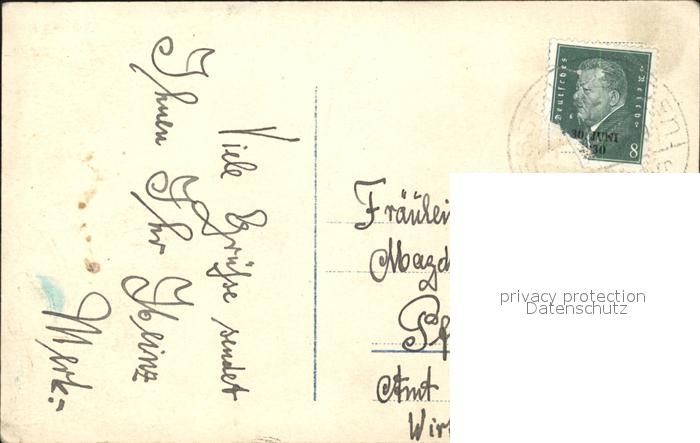 Viele Grüße sendet
Ihnen Ihr Heinz
Merk.-
Deutsches Reich
8
30. JUNI
1930
Fräulei
Magd
Pf
Amt
Wirt
privacy protection
Datenschutz